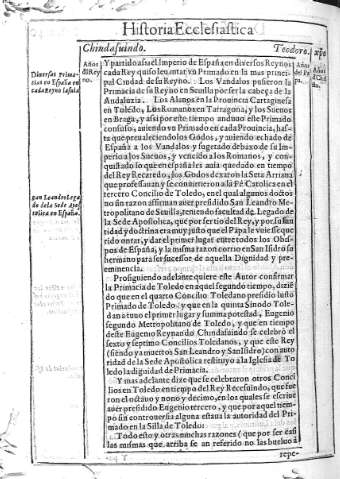 Historia Ecclesiastica
Chindasuindo.
Teodoro. xpo
Años
del Rey
no.
Diuersas Prima-
cias en España en
cada Reyno la suia
Y partido assi el Imperio de España en diuersos Reynos
cada Rey quiso leuantar vn Primado en la mas princi-
pal Ciudad de su Reyno. Los Vandalos pusieron la
Primacia de su Reyno en Seuilla por ser la cabeça de la
Andaluzia. Los Alanos en la Prouincia Cartaginesa
en Toledo, Los Romanos en Tarragona, y los Sueuos
en Braga, y assi por este tiempo anduuo este Primado
confuso, auiendo vn Primado en cada Prouincia, has-
ta que preualeciendo los Godos, y auiendo echado de
España a los Vandalos y sugetado debaxo de su Im-
perio a los Sueuos, y vencido a los Romanos, y con-
quistado lo que en España les auia quedado en tiempo
del Rey Recaredo, los Godos dexaron la Seta Arriana
que professauan y se conuirtieron a la Fè Catolica en el
tercero Concilio de Toledo, en el qual algunos docto
res sin razon affirman auer presidido San Leandro Me-
tropolitano de Seuilla, teniendo facultad de Legado de
la Sede Apostolica, que por ser tio del Rey, y por su san
tidad y doctrina era muy justo que el Papa le viniesse que
rido ontar, y dar el primer lugar entre todos los Obis-
pos de España, y la misma razon corrio en San Isidro su
hermano para ser sucessor de aquella Dignidad y pre-
eminencia.
San Leandro Lega
do de la Sede Apo
stolica en España.
Prosiguiendo adelante quiere este Autor confirmar
la Primacia de Toledo en aquel segundo tiempo, dizié
do que en el quarto Concilio Toledano presidio Iusto
Primado de Toledo: y que en la quinta Sinodo Toledana
tuuo el primer lugar y summa potestad, Eugenio
segundo Metropolitano de Toledo, y que en tiempo
deste Eugenio Reynando Chindasuindo se celebrò el
sexto y septimo Concilios Toledanos, y que este Rey
(siendo ya muertos San Leandro y San Isidro) con auto
ridad de la Sede Apostolica restituyo a la Iglesia de To
ledo la dignidad de Primacia.
Y mas adelante dize que se celebraron otros Conci
lios en Toledo en tiempo del Rey Recesuindo, que fue
ron el octauo y nono y decimo, en los quales se escriue
auer presidido Eugenio tercero, y que por aquel tiem-
po sin controuersia alguna estaua la autoridad del Pri-
mado en la Silla de Toledo.
Todo esto y otras muchas razones (que por ser casi
las mismas que arriba se an referido no las bueluo à
repe-